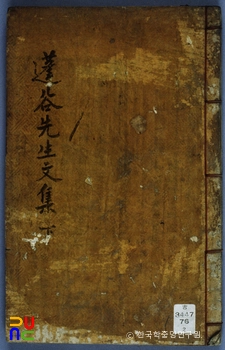 蓬谷先生文集 下
古
3447
76
한국학중앙연구원